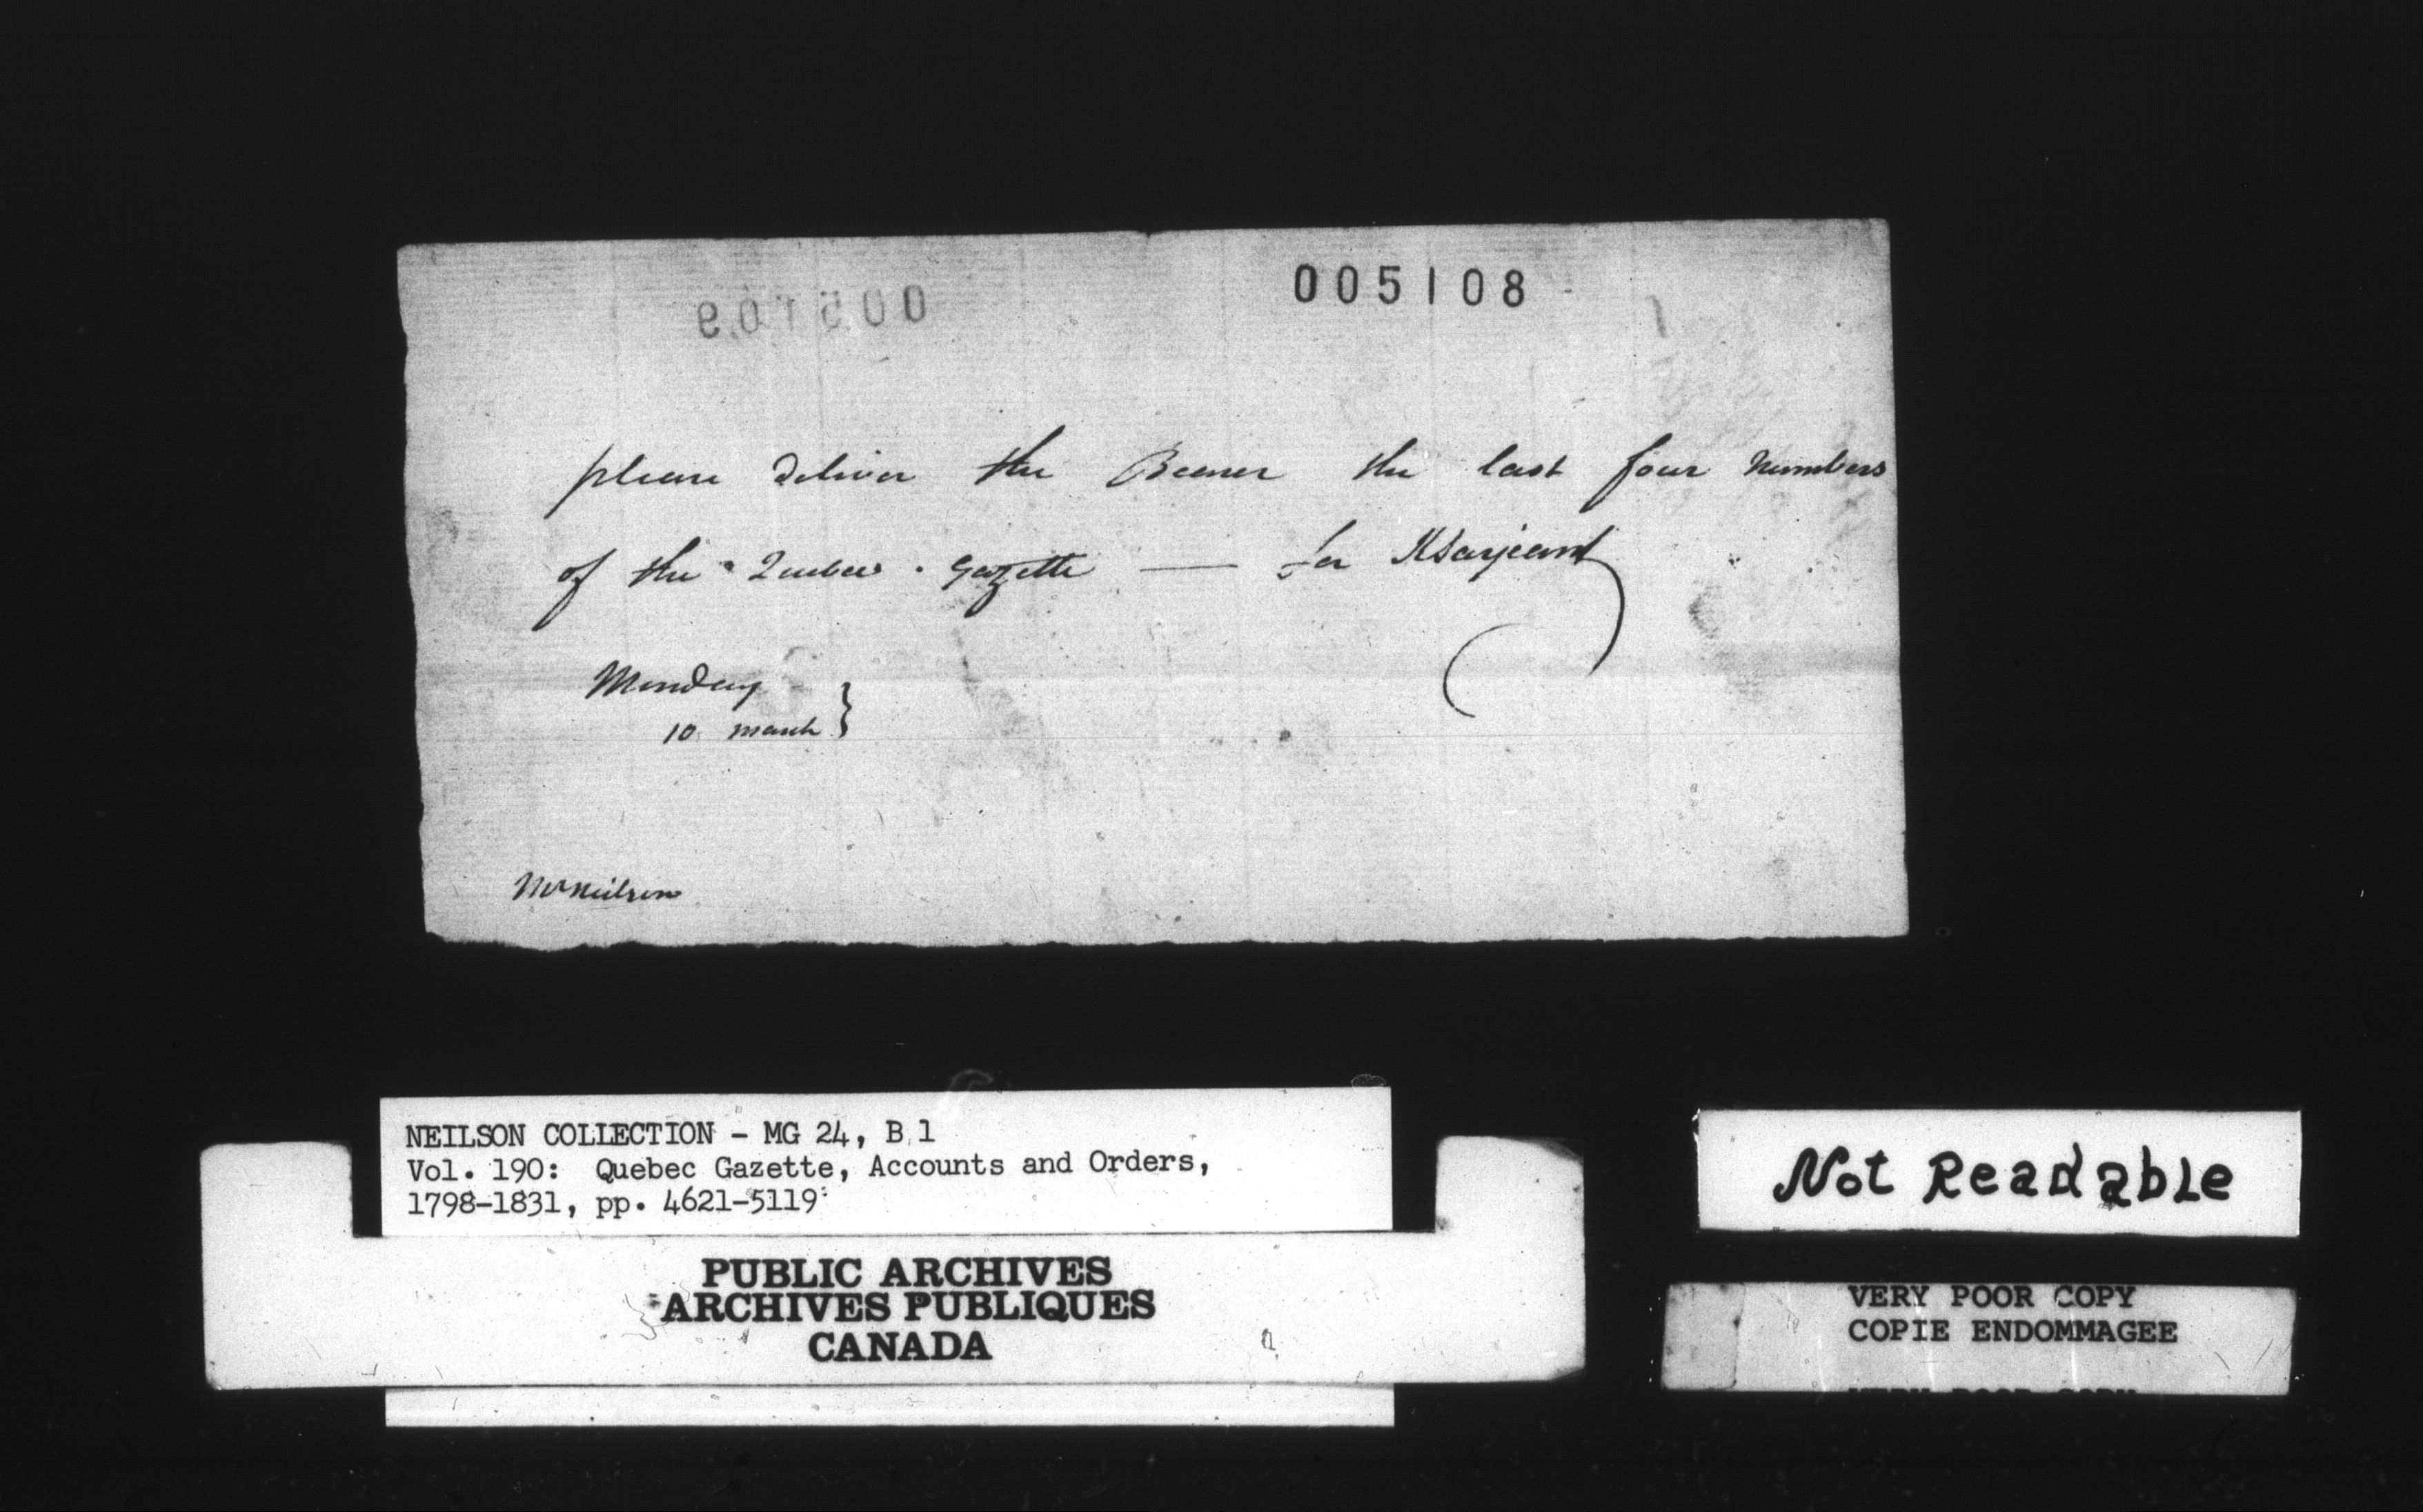 005108
005109
please deliver the Bearer the last four numbers
of the Quebec Gazette — for Sarjeant
Monday
10 march }
Mr Neilson
NEILSON COLLECTION - MG 24, B 1
Vol. 190: Quebec Gazette, Accounts and Orders,
1798-1831, pp. 4621-5119
PUBLIC ARCHIVES
ARCHIVES PUBLIQUES
CANADA
Not Readable
VERY POOR COPY
COPIE ENDOMMAGEE
VERY POOR COPY